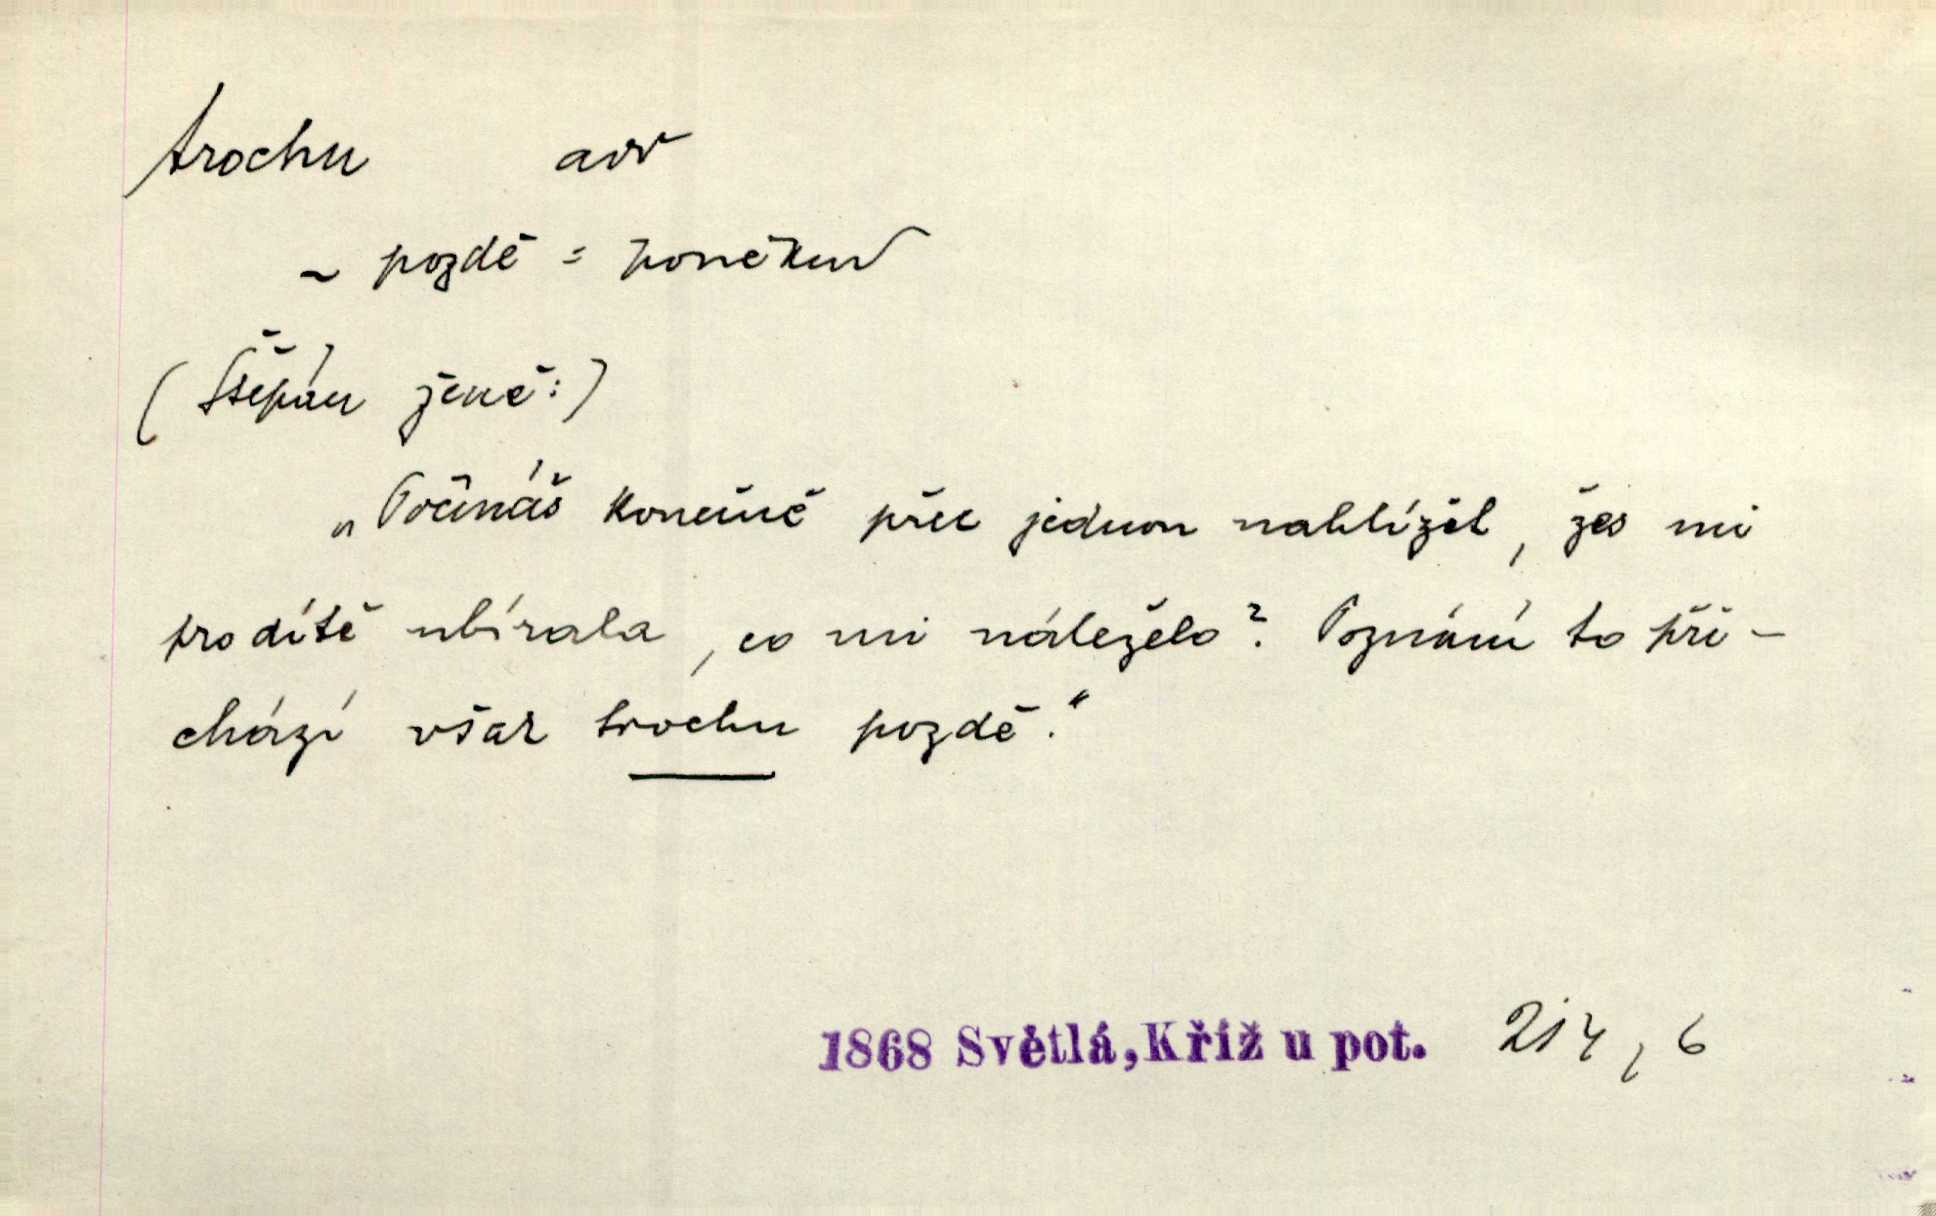 trochu adv
~ pozdě = poněkud
(Štěpán ženě:)
„Počínáš konečně přec jednou nahlížet, žes mi
prodítě ubírala, co mi náleželo? Poznání to při-
chází však trochu pozdě.“
1868 Světlá, Kříž u pot. 214, 6